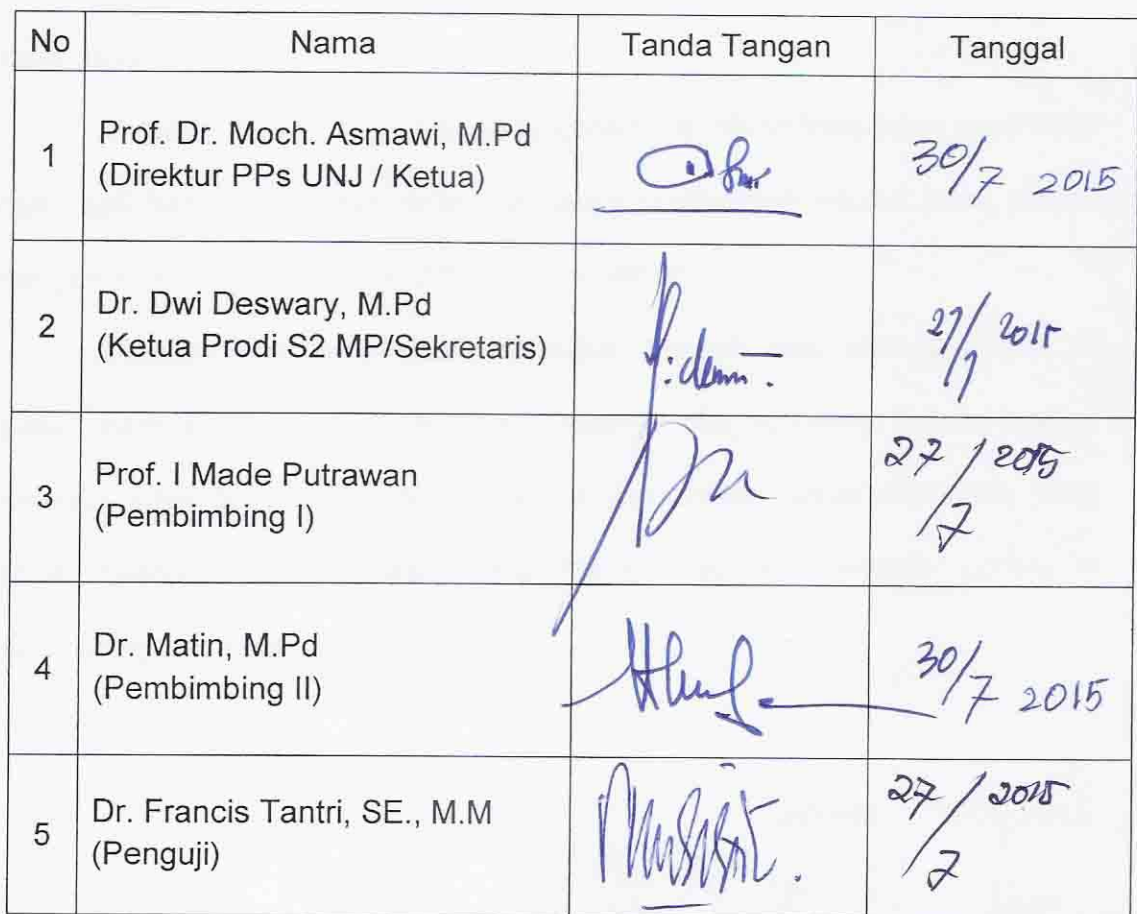 No Nama Tanda Tangan Tanggal
1 Prof. Dr. Moch. Asmawi, M.Pd
(Direktur PPs UNJ / Ketua)
30/7 2015
2 Dr. Dwi Deswary, M.Pd
(Ketua Prodi S2 MP/Sekretaris)
27/7 2015
3 Prof. I Made Putrawan
(Pembimbing I)
27/7 2015
4 Dr. Matin, M.Pd
(Pembimbing II)
30/7 2015
5 Dr. Francis Tantri, SE., M.M
(Penguji)
27/7 2015